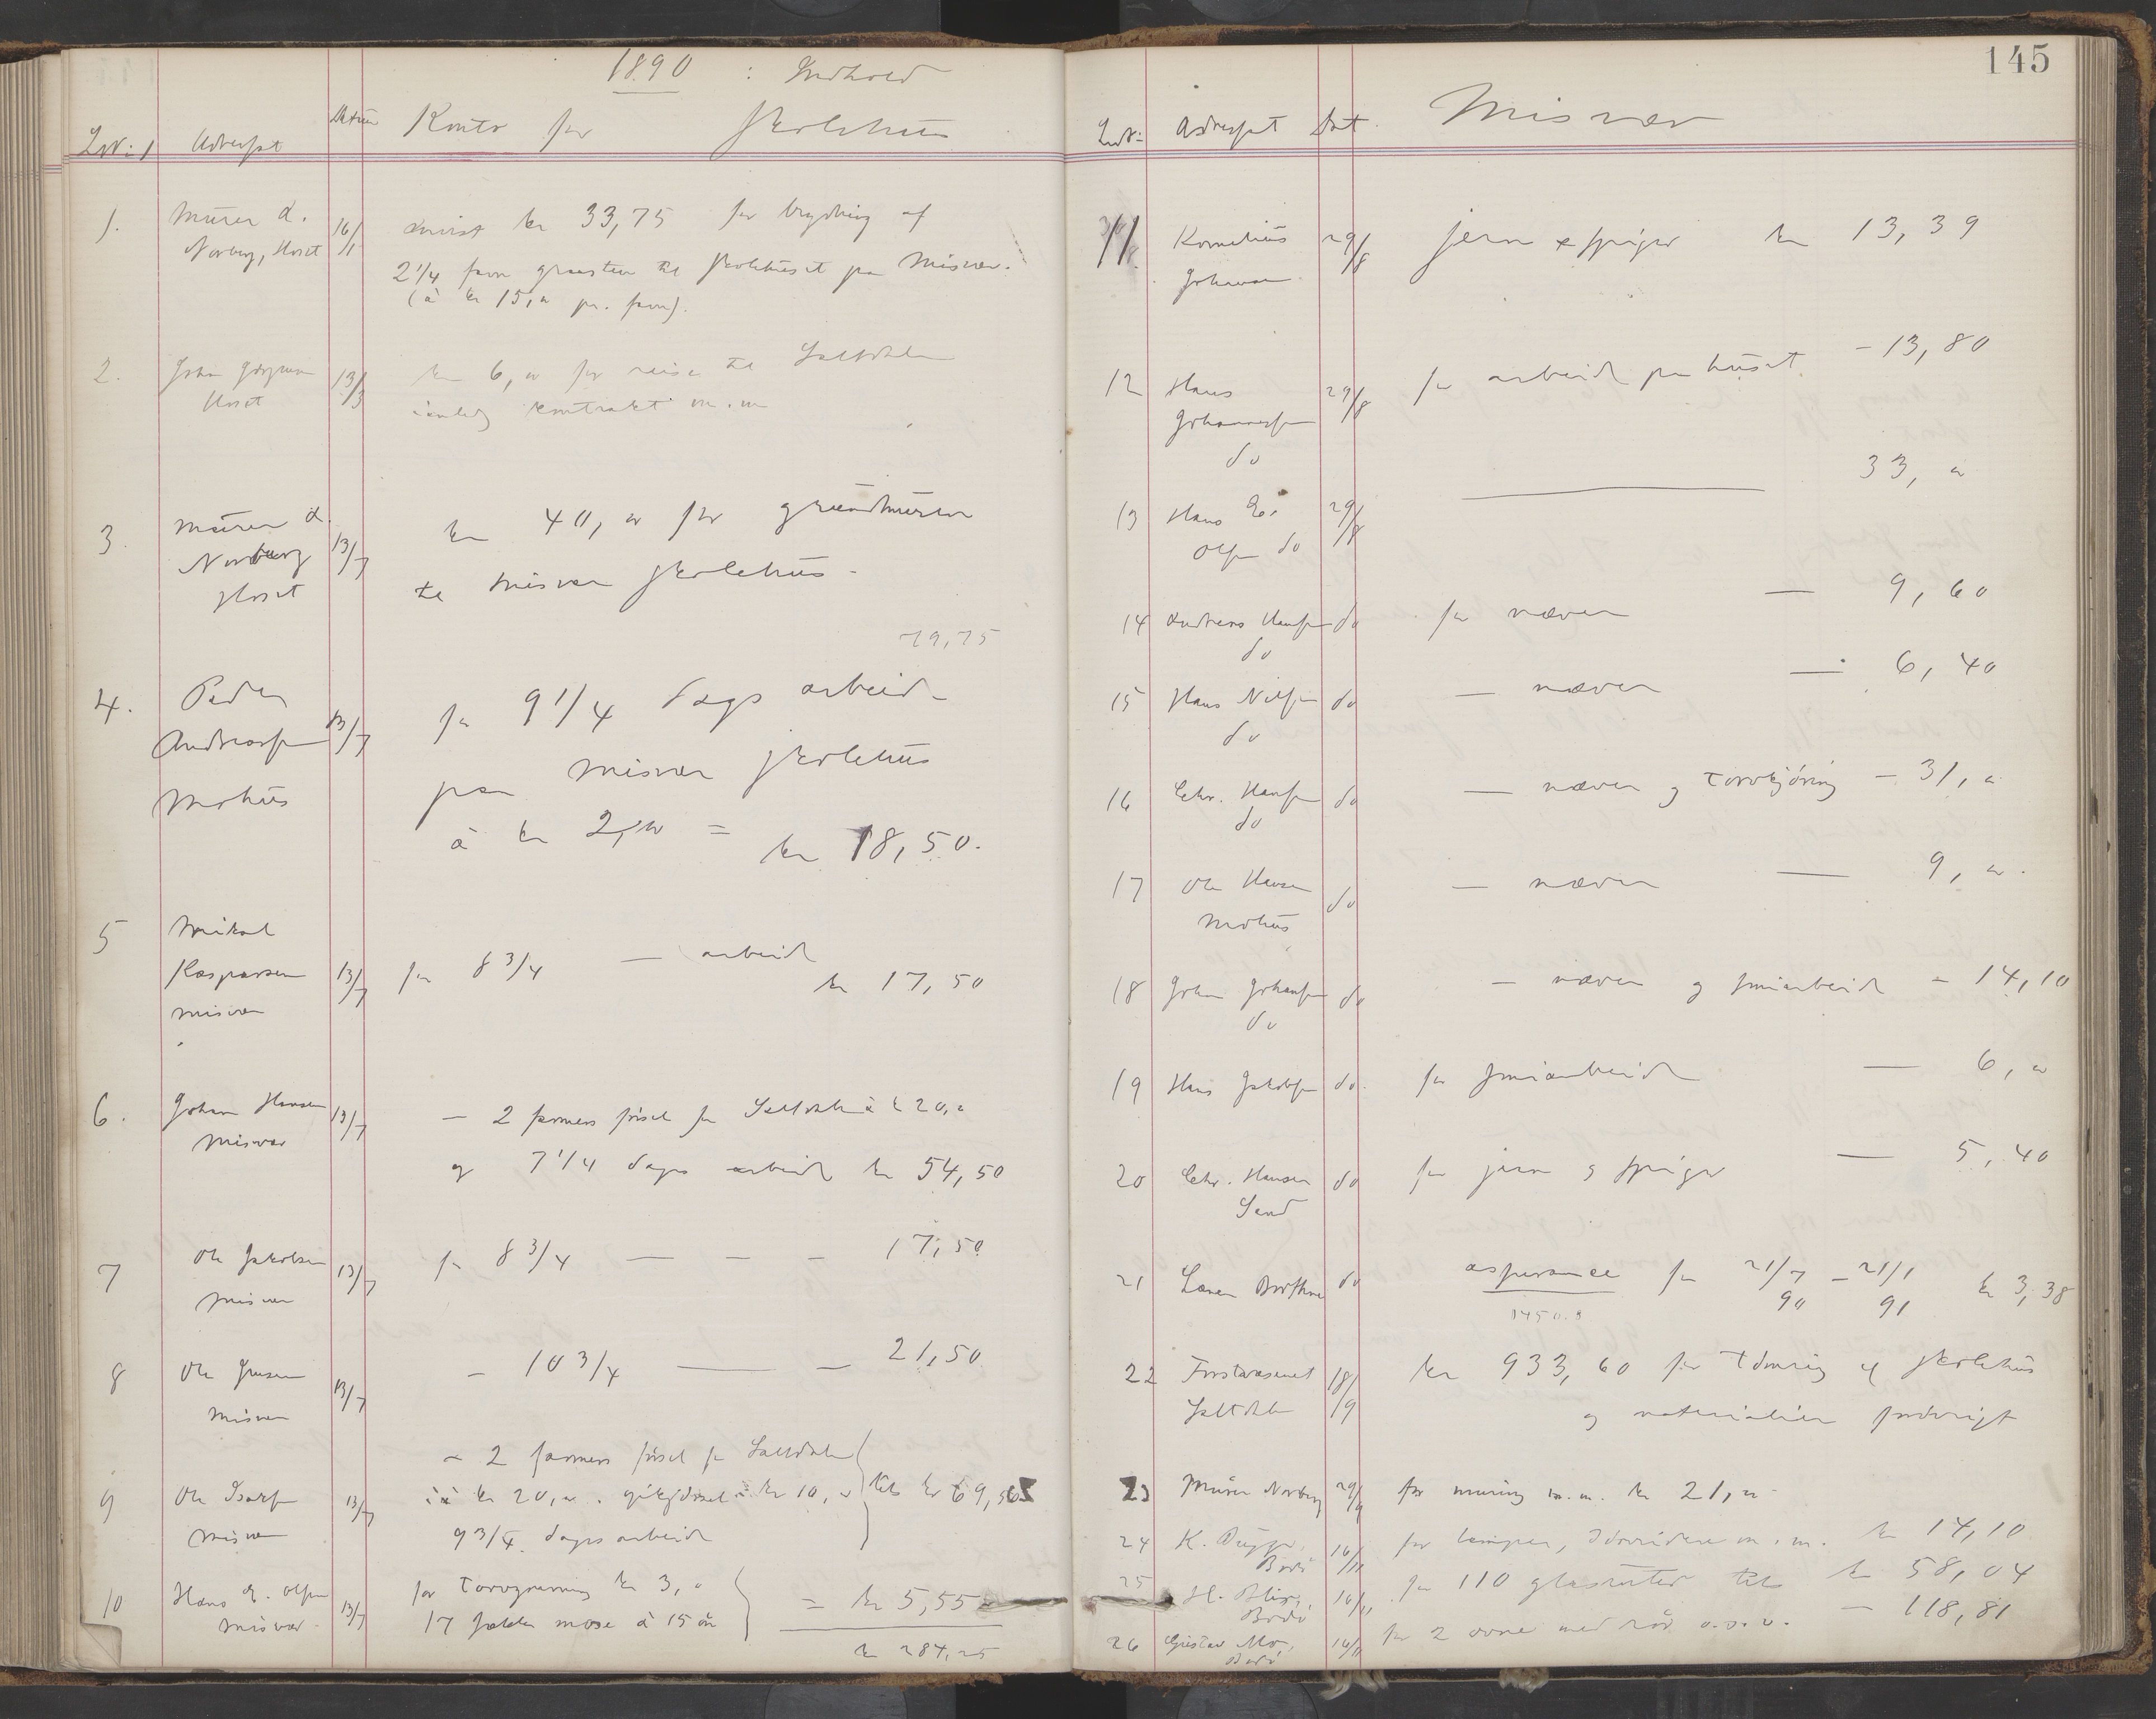 1890 : Indhold
Datum Konto for skolehus
Lnr: Adressat
1. Murer A. 16/1 anvist kr 33,75 for brydning af
Norberg, Hoset
2 1/4 favn graasten til skolehuset paa Misvær.
(à kr 15,00 pr. favn).
2. Johan Jørgensen 13/3 kr 6,00 for reise til Saltdalen
Hoset kontrakt m.m
3. Murer A. 13/7 kr 40,00 for grundmuren
Norberg
Hoset til Misvær skolehus.
79,75
4. Peder 13/7 for 9 1/4 dags arbeide
Andreassen paa Misvær skolehus
Mohus à kr 2,00 = kr 18,50.
5 Mikal
Kaspersen 13/7 for 8 3/4 — arbeid kr 17,50
Misvær
6. Johan Hansen 13/7 — 2 færinger fra Saltdalen à kr 20,00
Misvær og 7 1/4 dags arbeide kr 54,50
7 Ole Jakobsen 13/7 for 8 3/4 — — — 17,50
Misvær
8 Ole Jensen 13/7 — 10 3/4 — — 21,50
Misvær
— 2 fra Saltdalen
9 Ole 13/7 à kr 20,00 kr 10,00 tils kr 69,
Misvær 9 3/4 dags arbeide
10 Hans E. Olsen 13/7 for kr 3,00
Misvær 17 sække mose à 15 øre = kr 5,55
kr 284,25
145
Lnr: Adressat Dat. Misvær
11 Kornelius 29/8 jern & spiger kr 13,39
Johansen
12 Hans 29/8 for arbeide paa huset — 13,80
Johannessen
do
13 Hans E. 29/8 — 33,00
Olsen do
14 Andreas Hansen do for næver — 9,60
do
15 Hans Nilsen do — næver — 6,40
do
16 Chr. Hansen do — næver og torvkjøring — 31,00
do
17 Ole Hansen do — næver — 9,00
Mohus
18 Johan Johansen do — næver og smiarbeide — 14,10
do
19 Hans Jakobsen do for smiarbeide — 6,00
20 Chr. Hansen do for jern og spiger — 5,40
Sand
21 do assurance for 21/7 90 — 21/1 91 kr 3,38
1450.
22 Forstvæsenet 18/9 kr 933,60 for tømring af skolehus
Saltdalen og materialier
23 Murer Norberg 29/9 for muring m.m. kr 21,00
24 K. 16/11 for lamper, m.m. kr 14,10
Bodø
25 H. 16/11 for 110 glasruter tils kr 58,04
Bodø
26 Gustav Moe, 16/11 for 2 ovne med rør o.s.v. — 118,81
Bodø